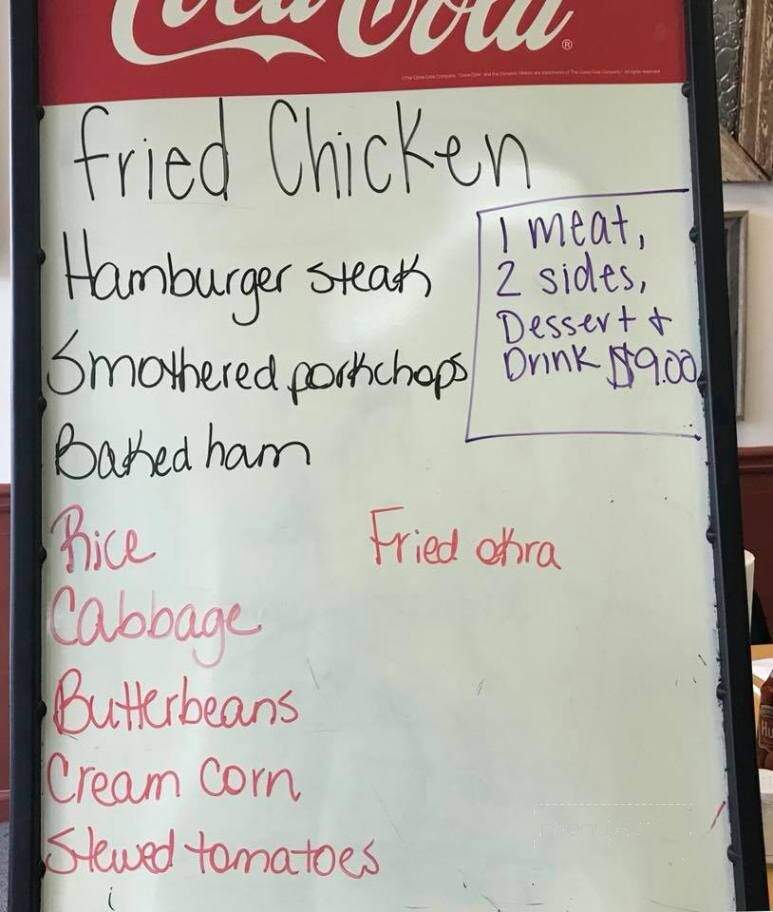 Coca-Cola
Fried Chicken
Hamburger steak
Smothered porkchops
Baked ham
1 meat,
2 sides,
Dessert +
Drink $9.00
Rice
Fried okra
Cabbage
Butterbeans
Cream corn
Stewed tomatoes